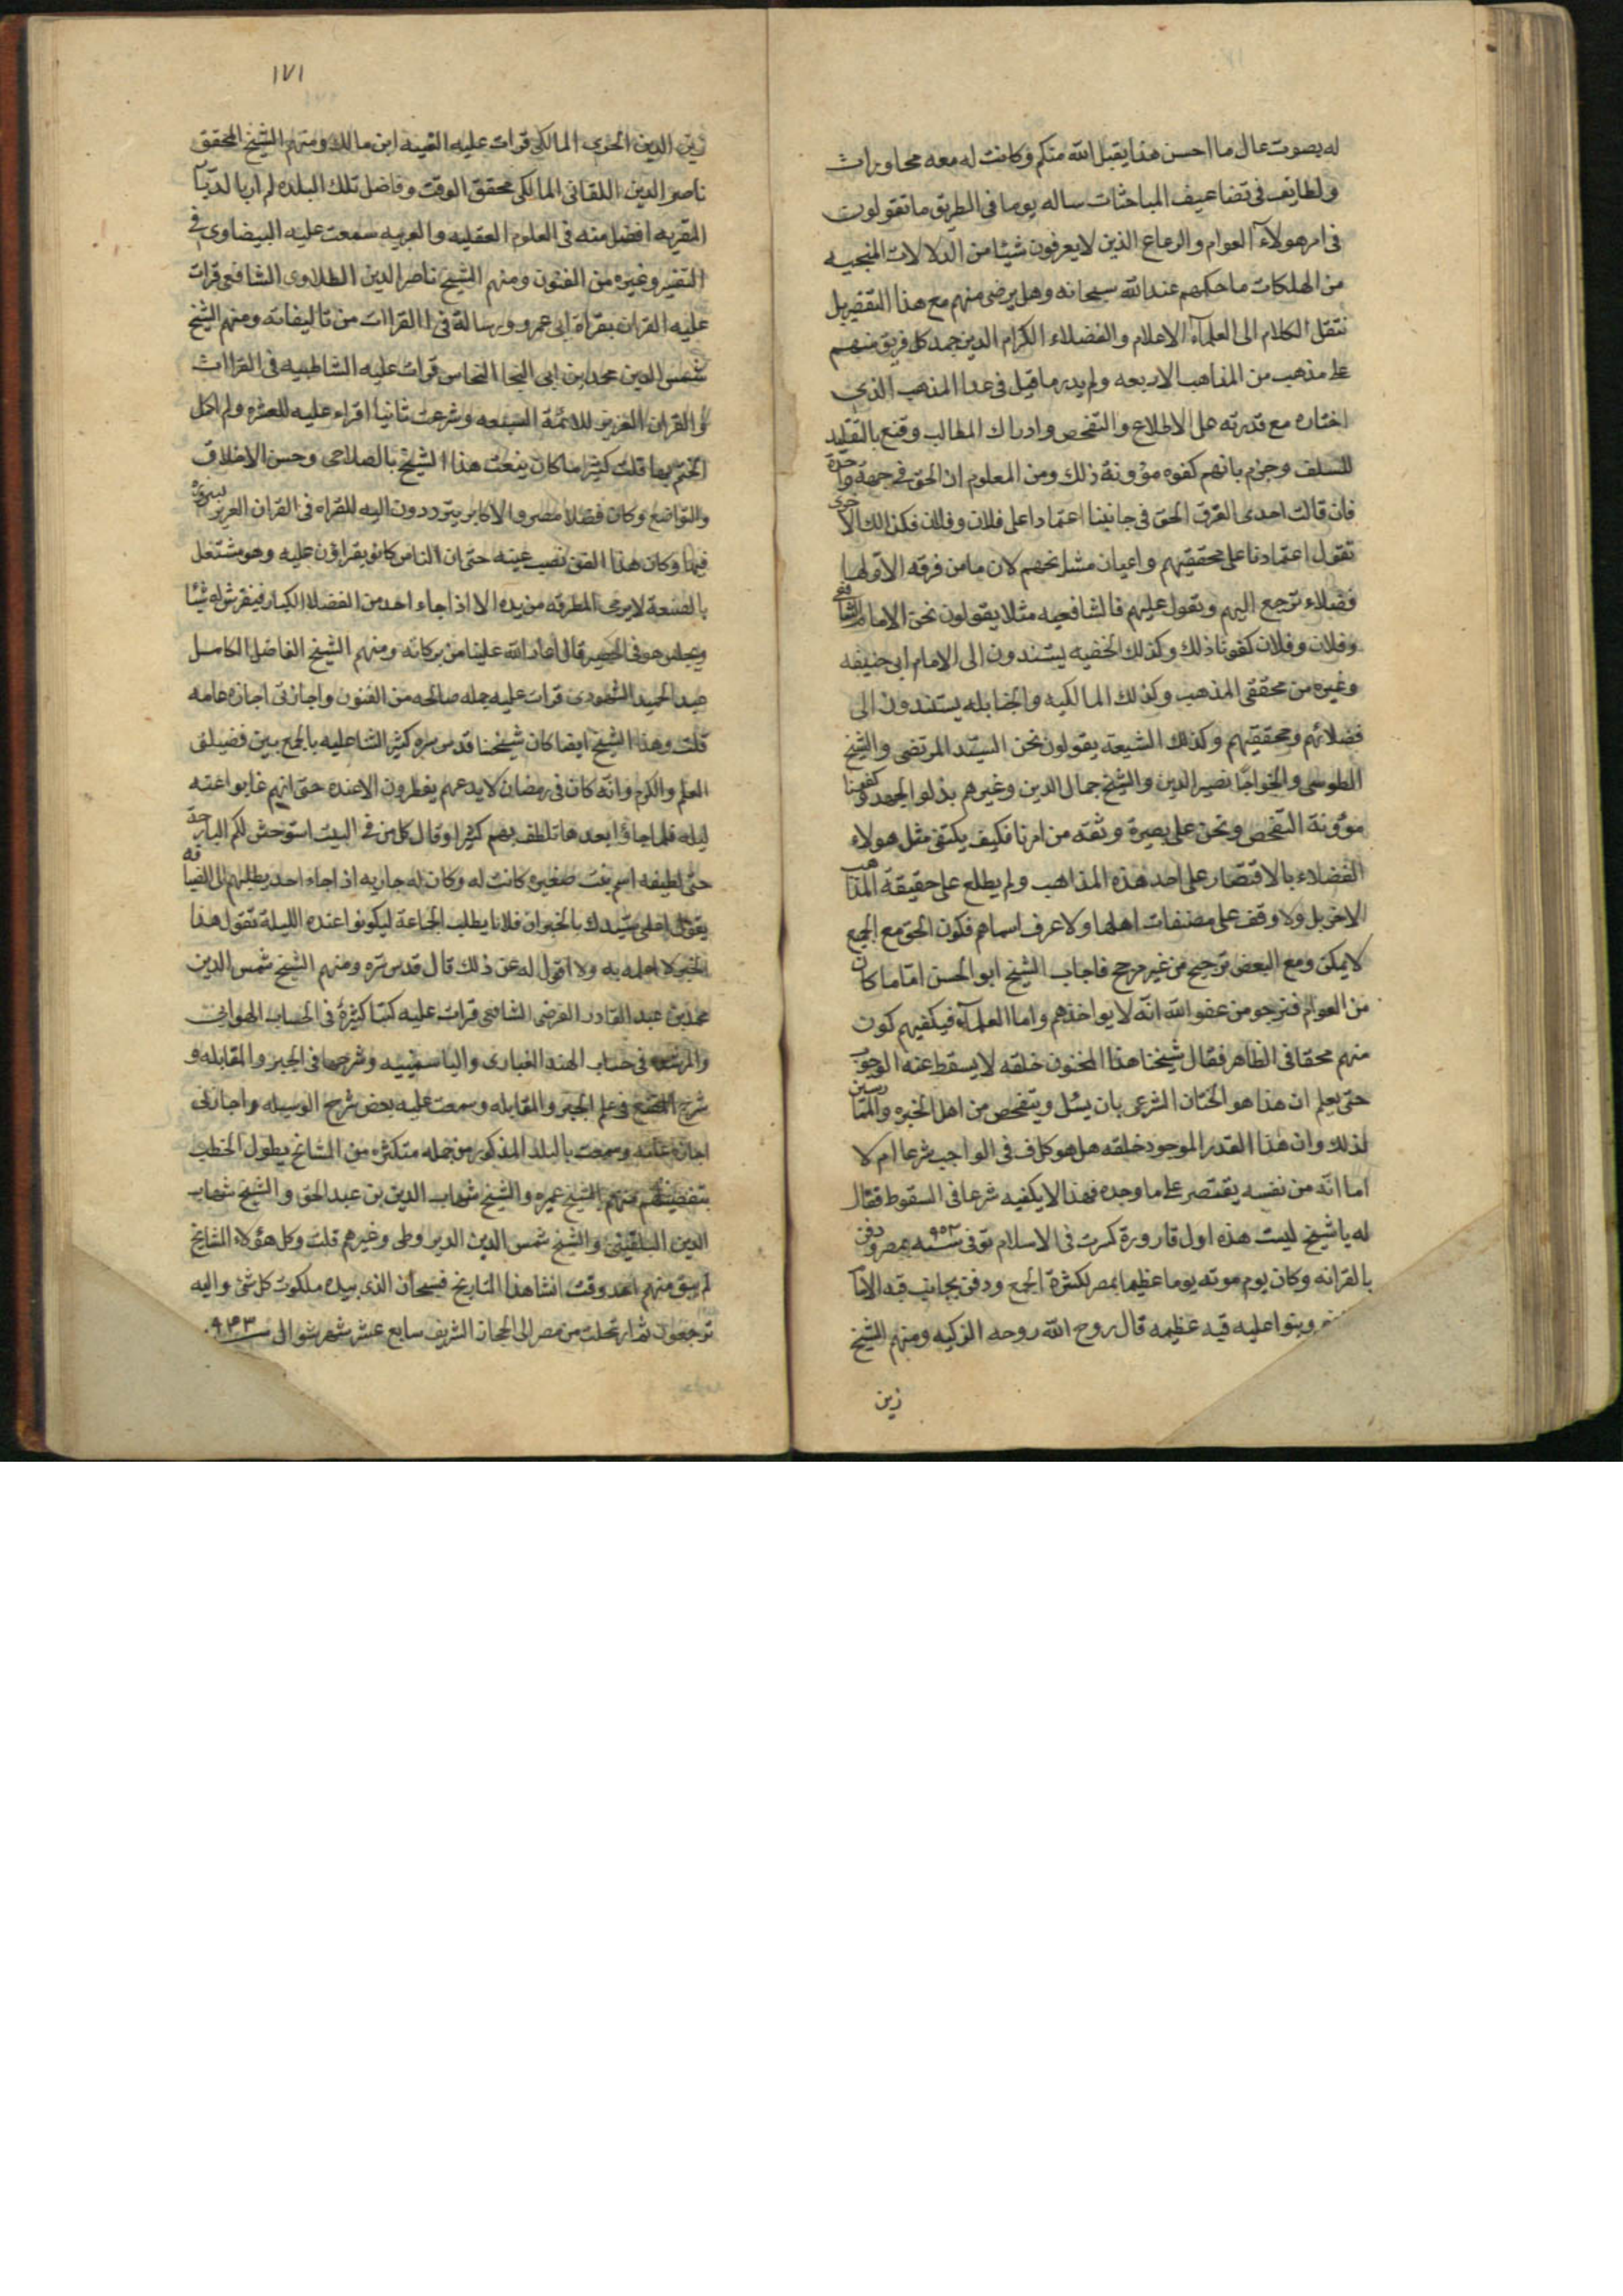 له بصوت عال ما احسن هذا يقبل الله منكم وكانت له معه محاورات
ولطايف في تضاعيف المباحثات ساله يوما في الطريق ما تقولون
في امر هولاء العوام والرعاع الذين لا يعرفون شيئا من الدلالات المنجيه
من الهلكات ما حكمهم عند الله سبحانه وهل يرضى منهم مع هذا التقصير بل
ننقل الكلام الى العلمآء الاعلام والفضلاء الكرام الذين جمد كل فريق منهم
على مذهب من المذاهب الاربعه ولم يدر ما قيل في عدا المذهب الذي
اختاره مع قدرته على الاطلاع والتفحص وادراك المطالب وقنع بالتقليد
للسلف وجزم بانهم كفوه مؤونة ذلك ومن المعلوم ان الحق في جهة واحدة
فان قالت احدى الفرق الحق في جانبنا اعتمادا على فلان وفلان فكذلك الاخرى
تقول اعتمادنا على محققيهم واعيان مشايخهم لان ما من فرقه الا ولها
فضلاء ترجع اليهم وتعول عليهم فالشافعيه مثلا يقولون نحن الامام الشافعي
وفلان وفلان كفونا ذلك وكذلك الحنفيه يستندون الى الامام ابي حنيفه
وغيره من محققي المذهب وكذلك المالكيه والحنابله يستندون الى
فضلائهم ومحققيهم وكذلك الشيعة يقولون نحن السيد المرتضى والشيخ
الطوسي والخواجا نصير الدين والشيخ جمال الدين وغيرهم بذلوا الجهد وكفونا
موؤنة التفحص ونحن على بصيرة وثقه من امرنا فكيف يكتفي مثل هولاء
الفضلاء بالاقتصار على احد هذه المذاهب ولم يطلع على حقيقة المذاهب
الاخر بل ولا وقف على مصنفات اهلها ولا عرف اسماهم فكون الحق مع الجميع
لا يمكن ومع البعض ترجيح من غير مرجح فاجاب الشيخ ابو الحسن اما ما كان
من العوام فنرجو من عفو الله انه لا يواخذهم واما العلمآء فيكفيهم كون
منهم محقا في الظاهر فقال شيخنا هذا المختون خلقه لا يسقط عنه الوجوب
حتى يعلم ان هذا هو الختان الشرعي بان يسئل ويتفحص من اهل الخبره والممارسين
لذلك وان هذا القدر الموجود خلقه هل هو كاف في الواجب شرعا ام لا
اما انه من نفسه يقتصر على ما وجده فهذا لا يكفيه شرعا في السقوط فقال
له يا شيخ ليست هذه اول قارورة كسرت في الاسلام توفي سنه ٩٥٢ بمصر ودفن
بالقرافه وكان يوم موته يوما عظيما بمصر لكثرة الجمع ودفن بجانب قبه الامام
وبنوا عليه قبه عظيمه قال روح الله روحه الزكيه ومنهم الشيخ
زين
١٧١
زين الدين الجرمي المالكي قرات عليه الفيه ابن مالك ومنهم الشيخ المحقق
ناصر الدين اللقاني المالكي محقق الوقت وفاضل تلك البلده لم ار بالديار
المصريه افضل منه في العلوم العقليه والعربيه سمعت عليه البيضاوي في
التفسير وغيره من الفنون ومنهم الشيخ ناصر الدين الطلاوي الشافعي قرات
عليه القران بقراة ابي عمرو ورسالة في القراات من تاليفاته ومنهم الشيخ
شمس الدين محمد بن ابي النجا النحاس قرات عليه الشاطبيه في القراات
والقران العزيز للائمة السبعه وشرعت ثانيا اقراء عليه للعشره ولم اكمل
الختم بها قلت كثيرا ما كان ينعت هذا الشيخ بالصلاح وحسن الاخلاق
والتواضع وكان فضلا مصر والاكابر يترددون اليه للقراه في القران العزيز لبروزه
فيها وكان هذا الفن نصب عينه حتى ان الناس كانوا يقراؤن عليه وهو مشتغل
بالصنعة لا يرمي المطرقه من يده الا اذا جاء احد من الفضلا الكبار فيفرش له شيئا
ويجلس هو في الحصير قال اعاد الله علينا من بركاته ومنهم الشيخ الفاضل الكامل
عبد الحميد السمهودي قرات عليه جمله صالحه من الفنون واجازني اجازه عامه
قلت وهذا الشيخ ايضا كان شيخنا قدس سره كثير الثنا عليه بالجمع بين فضيلتي
العلم والكرم وانه كان في رمضان لا يدعهم يفطرون الا عنده حتى انهم غابوا عنه
ليله فلما جاؤا بعدها تلطف بهم كثيرا وقال كل من في البيت استوحش لكم البارحة
حتى لطيفه اسم بنت صغيره كانت له وكان له جاريه اذا جاء احد يطلبهم الى الضيافه
يقول اعلمي سيدك بالخبر ان فلانا يطلب الجماعة ليكونوا عنده الليلة فتقول هذا
الخبر لا اعلمه به ولا اقول له عن ذلك قال قدس سره ومنهم الشيخ شمس الدين
محمد بن عبد القادر الفرضي الشافعي قرات عليه كتبا كثيرة في الحساب الهوائي
والمرشده في حساب الهند الغباري والياسمينيه وشرحها في الجبر والمقابله و
شرح المقنع في علم الجبر والمقابله وسمعت عليه بعض شرح الوسيله واجازني
اجازة عامه وسمعت بالبلد المذكور من جمله متكثره من المشايخ يطول الخطب
بتفصيلهم منهم الشيخ عميره والشيخ شهاب الدين بن عبد الحق والشيخ شهاب
الدين البلقيني والشيخ شمس الدين الديروطي وغيرهم قلت وكل هؤلاء المشايخ
لم يبق منهم احد وقت انشا هذا التاريخ فسبحان الذي بيده ملكوت كل شئ واليه
ترجعون ثم ارتحلت من مصر الى الحجاز الشريف سابع عشر شهر شوال سنه ٩٤٣